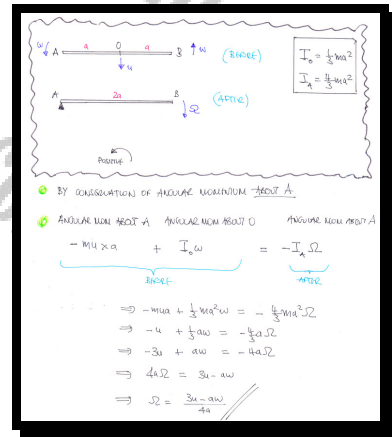 ω A a O a B ω (BEFORE)
u
I₀ = ⅓ma²
I_A = 4/3 ma²
A 2a B (AFTER)
Ω
POSITIVE
BY CONSERVATION OF ANGULAR MOMENTUM ABOUT A
ANGULAR MOM ABOUT A ANGULAR MOM ABOUT O ANGULAR MOM ABOUT A
- mu × a + I₀ω = - I_A Ω
BEFORE AFTER
⇒ -mua + ⅓ma²ω = - 4/3 ma²Ω
⇒ -u + ⅓aω = - 4/3 aΩ
⇒ -3u + aω = -4aΩ
⇒ 4aΩ = 3u - aω
⇒ Ω = (3u - aω)/4a